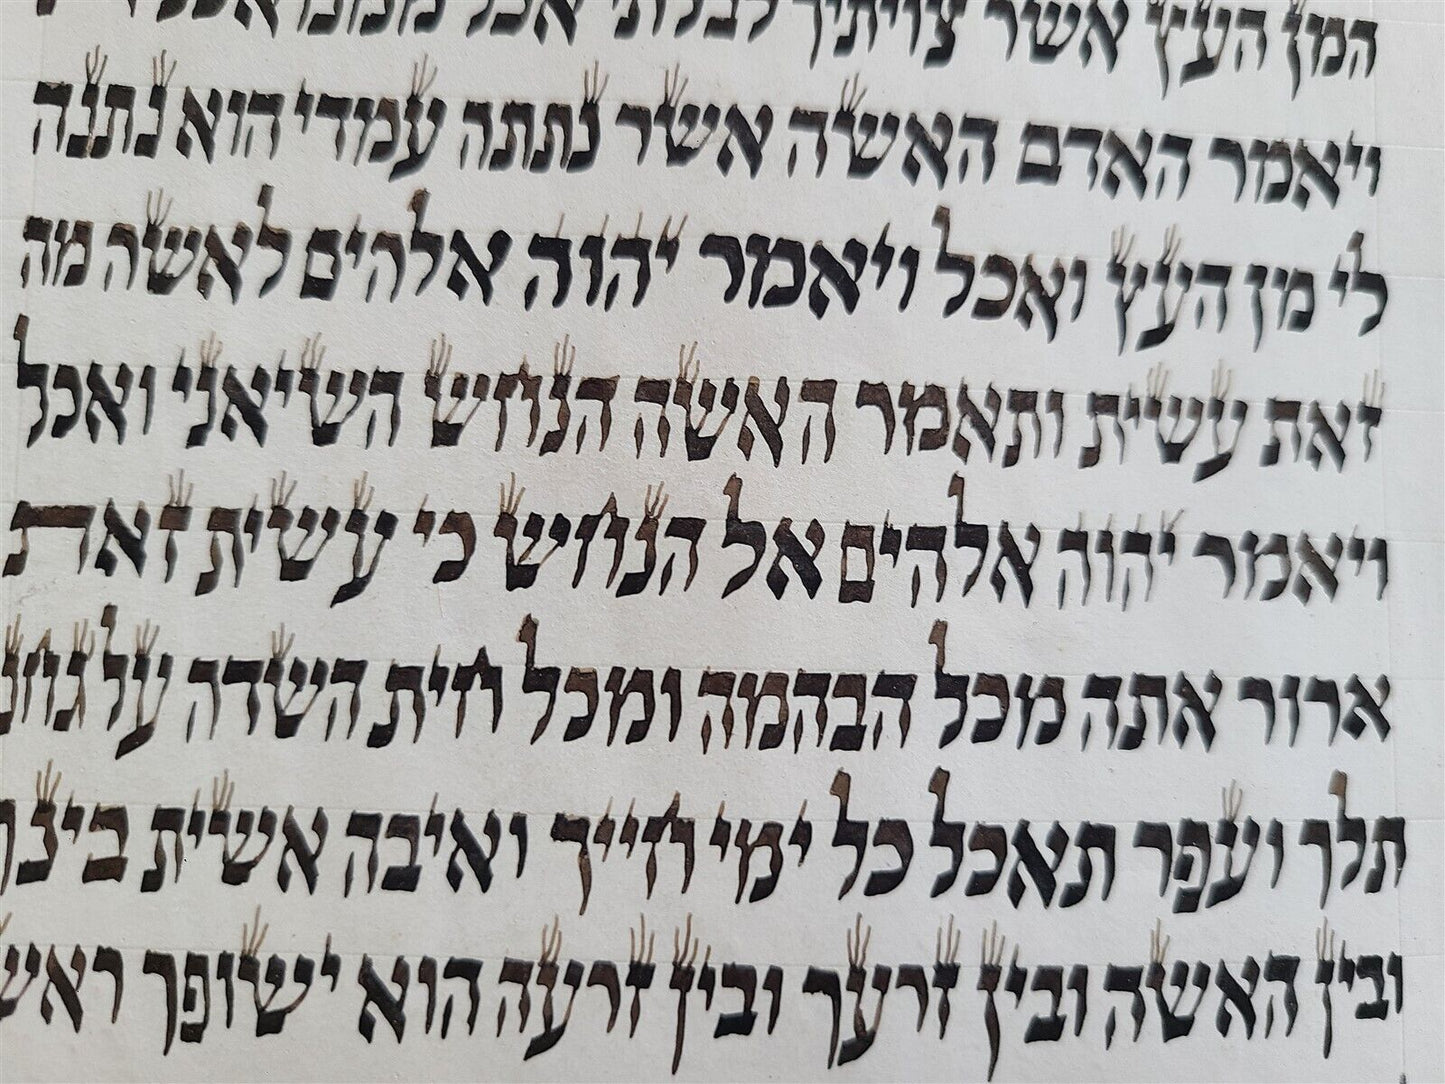 המן העץ אשר צויתיך לבלתי אכל ממנו
ויאמר האדם האשה אשר נתתה עמדי הוא נתנה
לי מן העץ ואכל ויאמר יהוה אלהים לאשה מה
זאת עשית ותאמר האשה הנחש השיאני ואכל
ויאמר יהוה אלהים אל הנחש כי עשית זאת
ארור אתה מכל הבהמה ומכל חית השדה על
תלך ועפר תאכל כל ימי חייך ואיבה אשית
ובין האשה ובין זרעך ובין זרעה הוא ישופך ראש